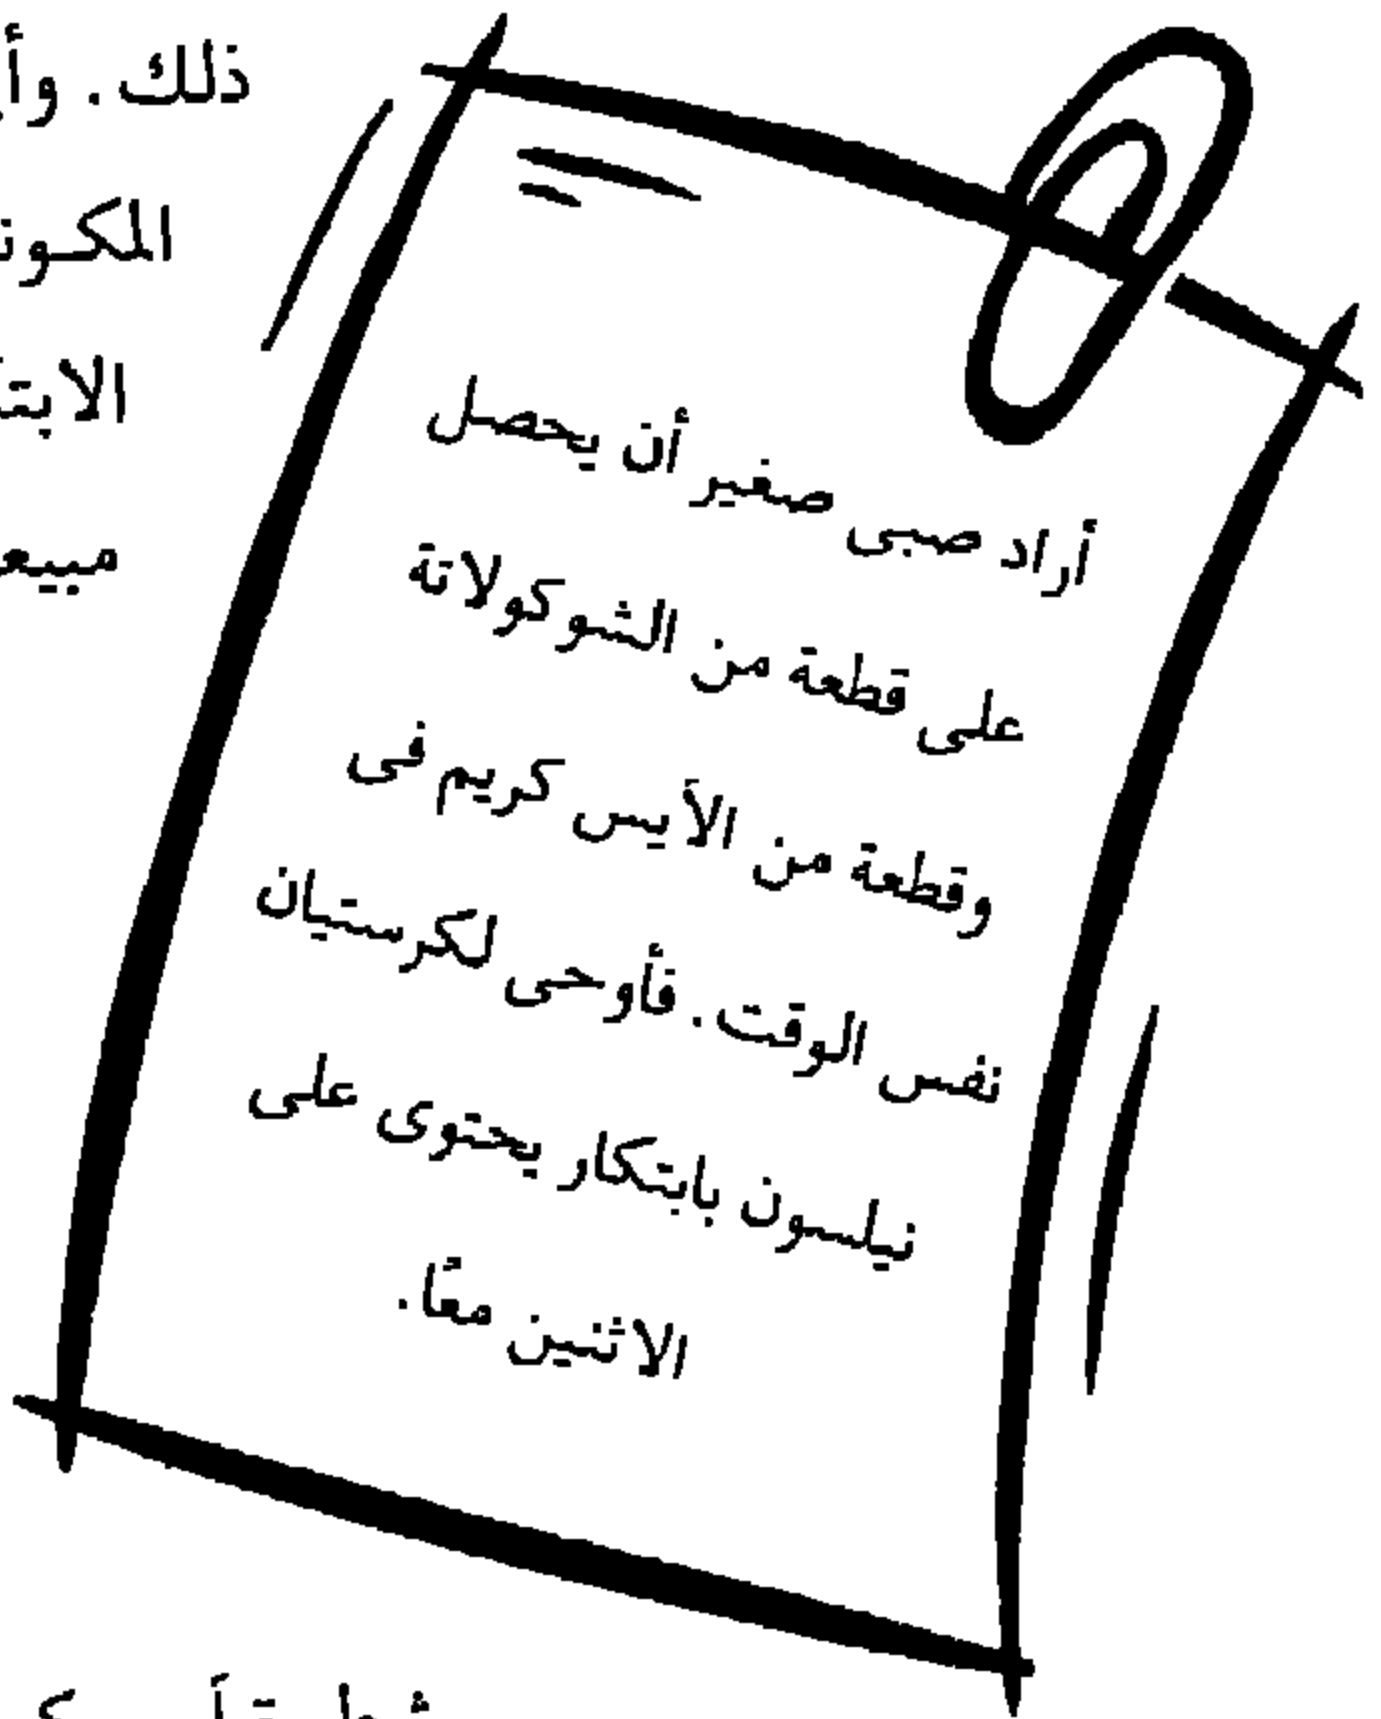 ذلك.
أراد صبى صغير أن يحصل
على قطعة من الشوكولاتة
وقطعة من الأيس كريم فى
نفس الوقت. فأوحى لكرستيان
نيلسون بابتكار يحتوى على
الاثنين معًا.